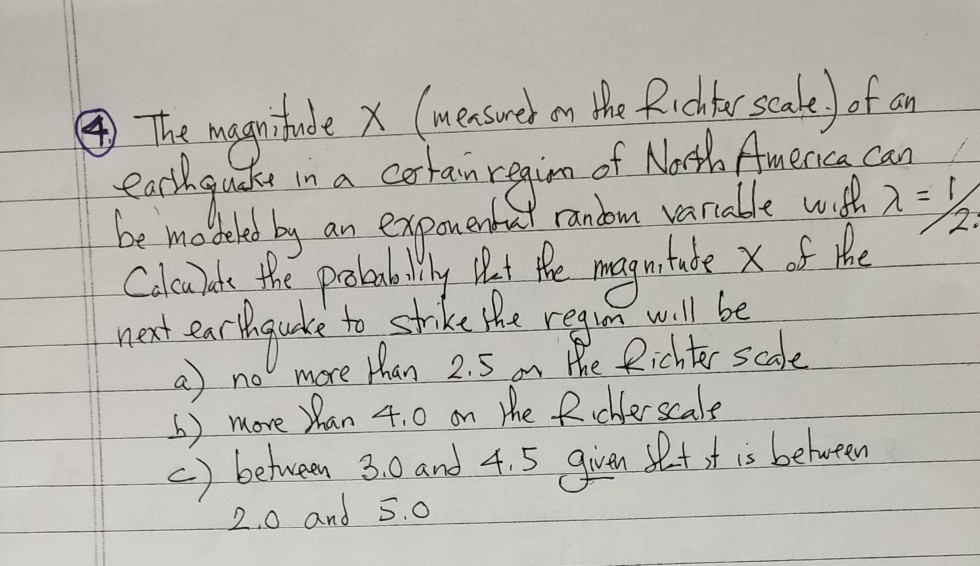 4. The magnitude X (measured on the Richter scale.) of an
earthquake in a certain region of North America can
be modeled by an exponential random variable with λ = 1/2.
Calculate the probability that the magnitude X of the
next earthquake to strike the region will be
a) no more than 2.5 on the Richter scale
b) more than 4.0 on the Richter scale
c) between 3.0 and 4.5 given that it is between
2.0 and 5.0